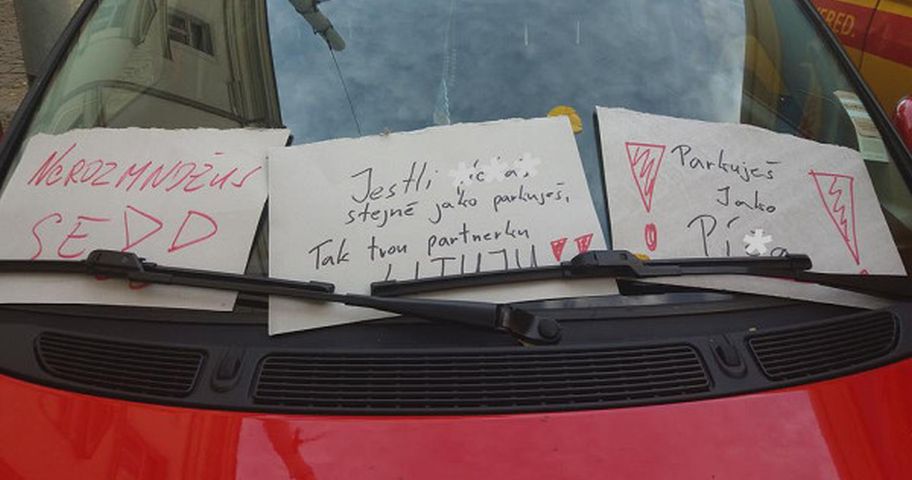 NEROZMNOŽUJ
SE DD
Jestli *íc*á*
stejně jako parkuješ,
Tak tvou partnerku
LITUJU !!
Parkuješ
Jako
Pí*a
RED.